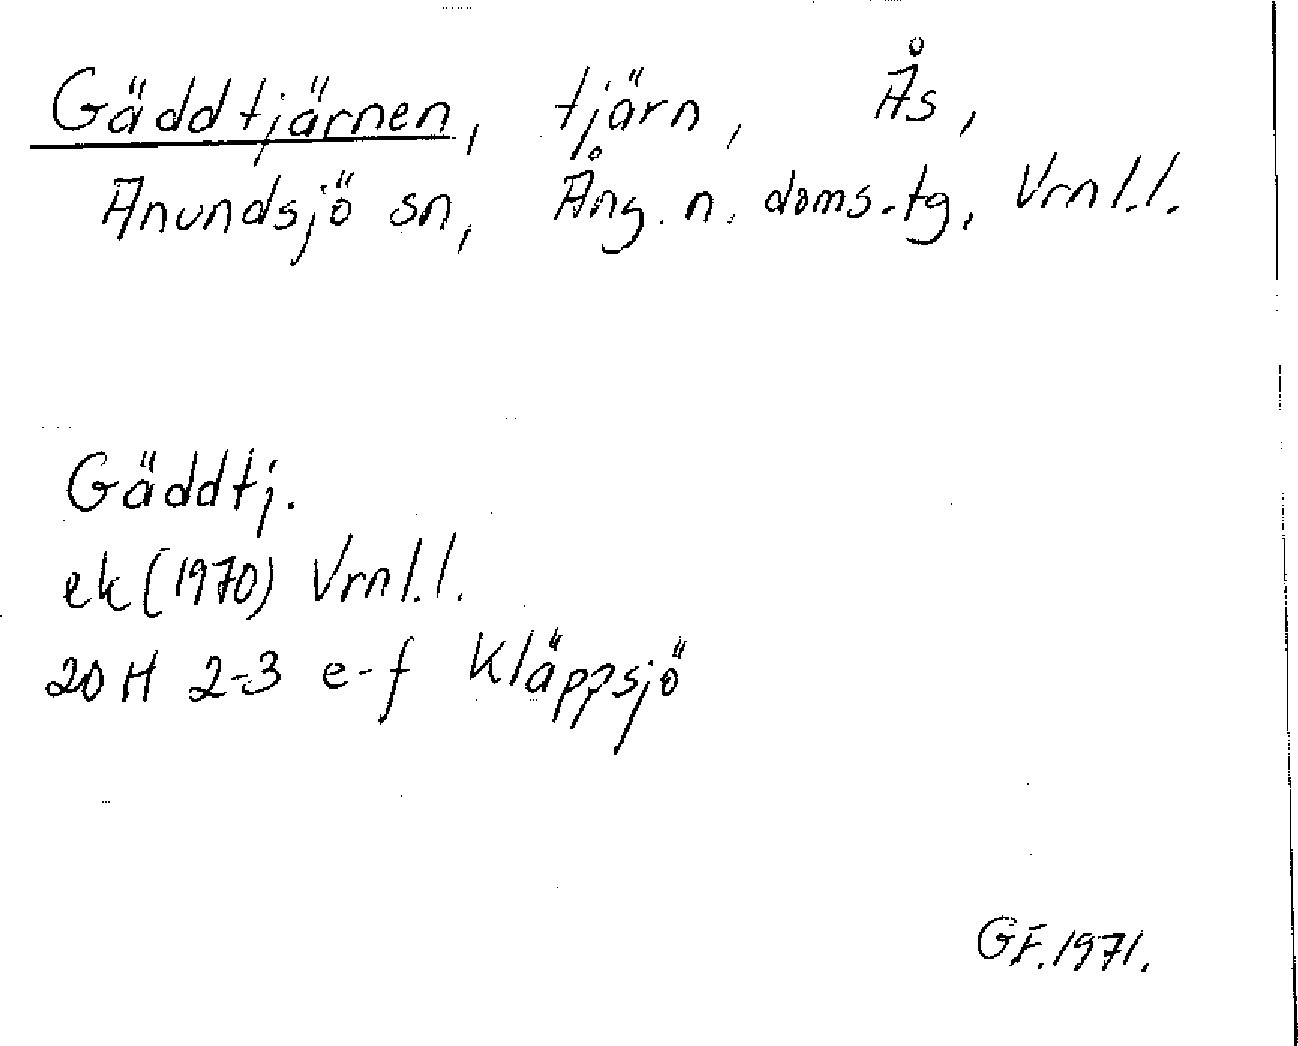 Gäddtjärnen, tjärn, Ås,
Anundsjö sn, Ång. n. doms.tg, Vrnl.l.
Gäddtj.
ek (1970) Vrnl.l.
20 H 2-3 e-f Kläppsjö
GF.1971.